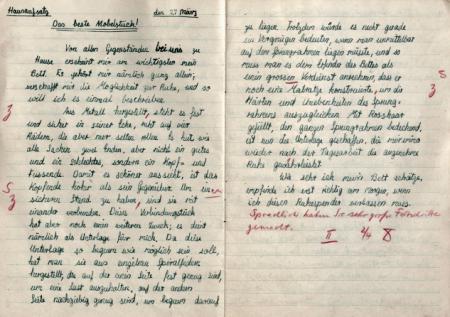 Hausaufsatz den 27. März
Das beste Möbelstück!
Von allen Gegenständen bei uns zu
Hause erscheint mir am wichtigsten mein
Bett. Es gehört mir nämlich ganz allein;
verschafft mir die Möglichkeit zur Ruhe, und so
will ich es einmal beschreiben.
Aus Metall hergestellt, steht es fest
und sicher in seiner Ecke, ruht auf vier
Rädern, die aber nur selten rollen. Es hat, wie
alle Sachen, zwei Enden, aber nicht ein gutes
und ein schlechtes, sondern ein Kopf- und
Fussende. Damit es schöner aussieht, ist das
Kopfende höher als sein Gegenüber. Um einen
sicheren Stand zu haben, sind sie mit
einander verbunden. Dieses Verbindungsstück
hat aber noch einen weiteren Zweck; es dient
nämlich als Unterlage für mich. Da diese
Unterlage so bequem wie möglich sein soll,
hat man sie aus ungezählten Spiralfedern
hergestellt, die auf der einen Seite fest genug sind,
um eine Last auszuhalten, auf der anderen
Seite nachgiebig genug sind, um bequem darauf
zu liegen. Trotzdem würde es nicht gerade
ein Vergnügen bedeuten, wenn man unmittelbar
auf dem Sprungrahmen liegen müsste, und so
muss man es dem Erfinder des Bettes als
sein grosses Verdienst anrechnen, dass er
noch eine Matratze konstruierte, um die
Härten und Unebenheiten des Sprung-
rahmens auszugleichen. Mit Rosshaar
gefüllt, den ganzen Sprungrahmen bedeckend,
ist nun die Unterlage geschaffen, die mir immer
wieder nach der Tagesarbeit die angenehme
Ruhe gewährleistet.
Wie sehr ich mein Bett schätze,
empfinde ich erst richtig am Morgen, wenn
ich diesen Ruhespender verlassen muss.
Sprachlich haben Sie sehr grosse Fortschritte
gemacht.
II